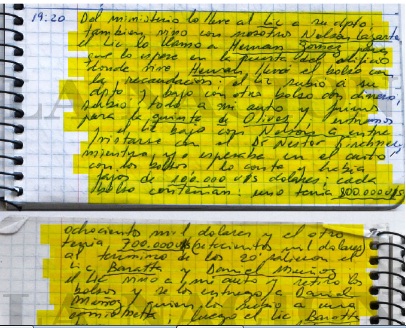 19:20 Del ministerio lo lleve al Lic a su dpto,
tambien vino con nosotros Nelson Lazarte
el Lic lo llamo a Hernan Gomez para
que lo espere en la puerta del edificio
donde vive Hernan llevo el bolso con
la recaudacion, el Lic subio a su
dpto y bajo con otro bolso con dinero,
subio todo a mi auto y fuimos
para la quinta de Olivos, entramos
y el Lic bajo con Nelson a entre
vistarse con el Dr Nestor Kirchner,
mientras yo esperaba en el auto
con los bolsos, lo conte y habia
fajos de 100.000 U$S dolares, cada
bolso contenian, uno tenia 800.000 U$S
ochocientos mil dolares y el otro
tenia 700.000 U$S setecientos mil dolares
al termino de los 20' salieron el
Lic Baratta y Daniel Muñoz
el Lic vino a mi auto y retiro los
bolsos y se los entrego a Daniel
Muñoz y quien los subio a una
camioneta, luego el Lic Baratta
LA NACION